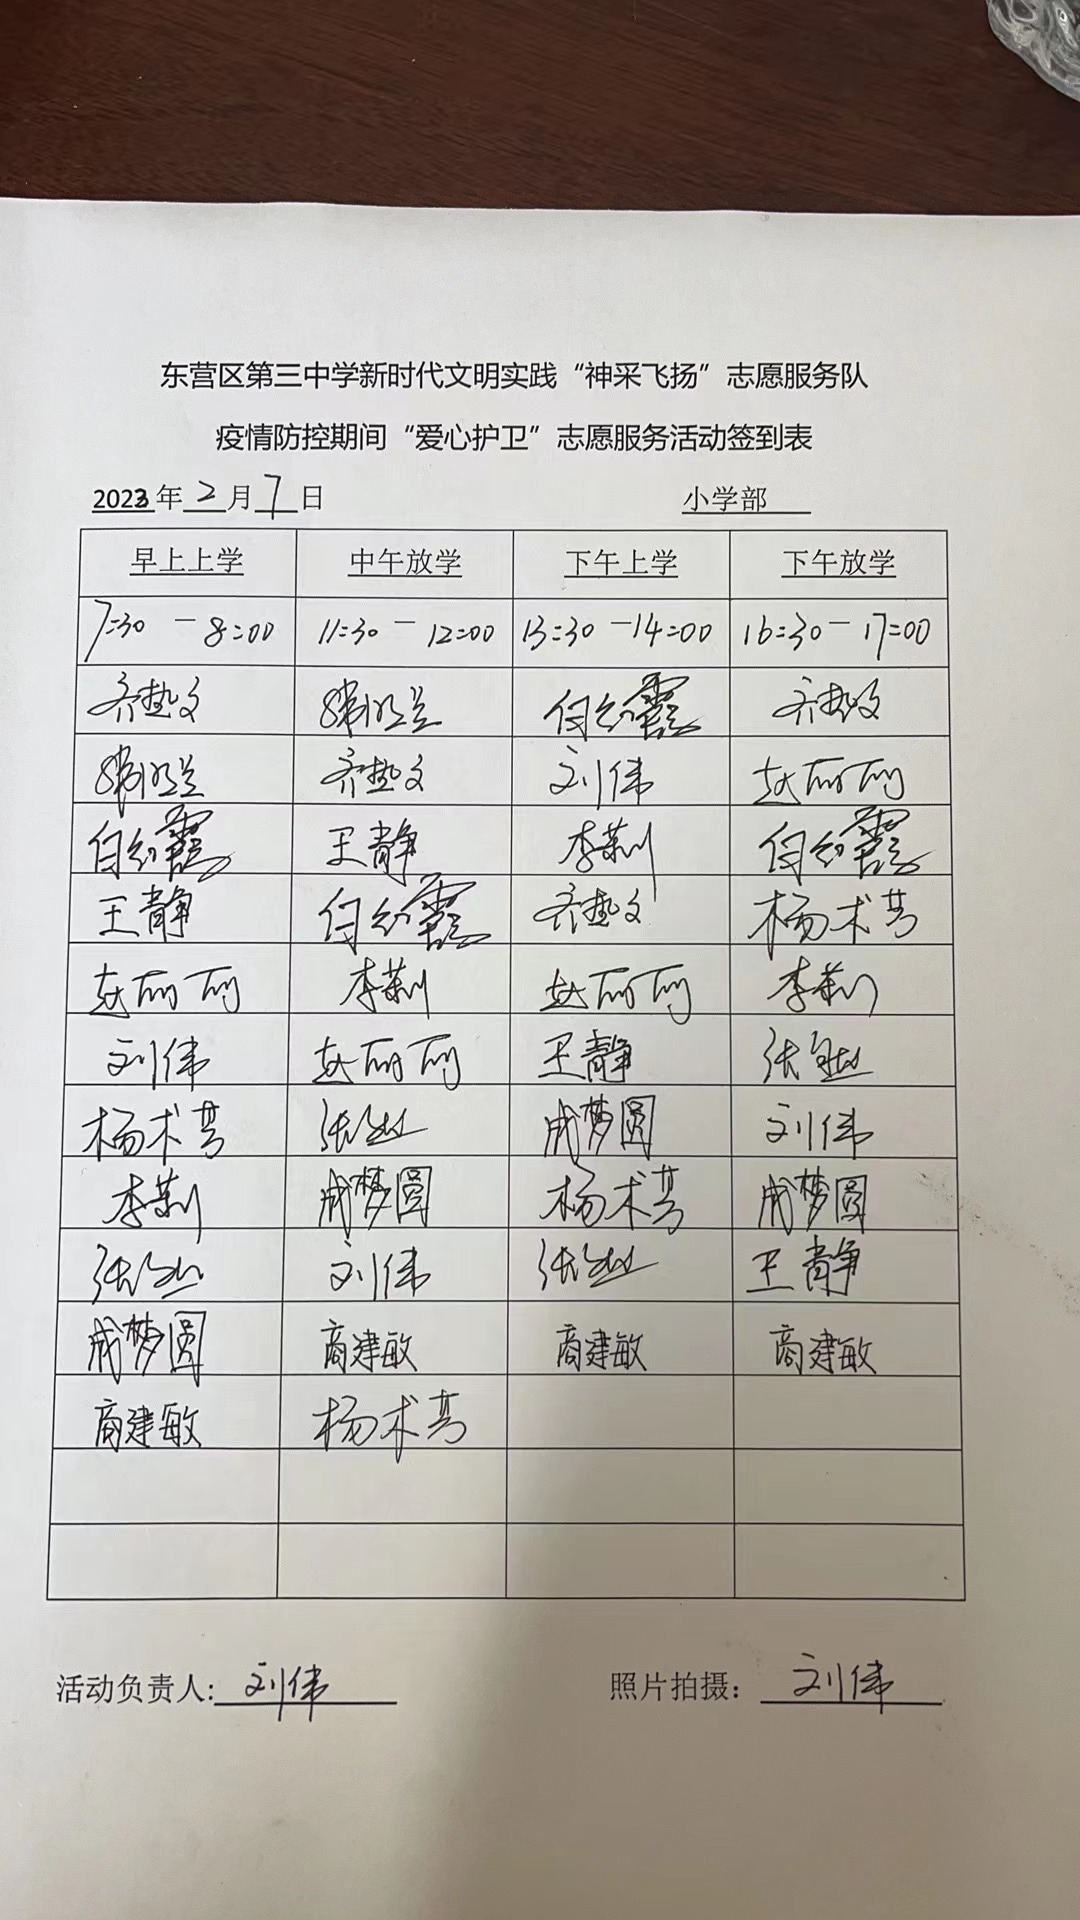 东营区第三中学新时代文明实践“神采飞扬”志愿服务队
疫情防控期间“爱心护卫”志愿服务活动签到表
2023年2月7日 小学部
早上上学 中午放学 下午上学 下午放学
7:30-8:00 11:30-12:00 13:30-14:00 16:30-17:00
齐文 齐文
刘伟 赵丽丽
王静 李莉
王静 杨术芳
赵丽丽 李莉 赵丽丽 李莉
刘伟 赵丽丽 王静 张
杨术芳 张 成梦圆 刘伟
李莉 成梦圆 杨术芳 成梦圆
张 刘伟 张 王静
成梦圆 商建敏 商建敏 商建敏
商建敏 杨术芳
活动负责人:刘伟 照片拍摄：刘伟